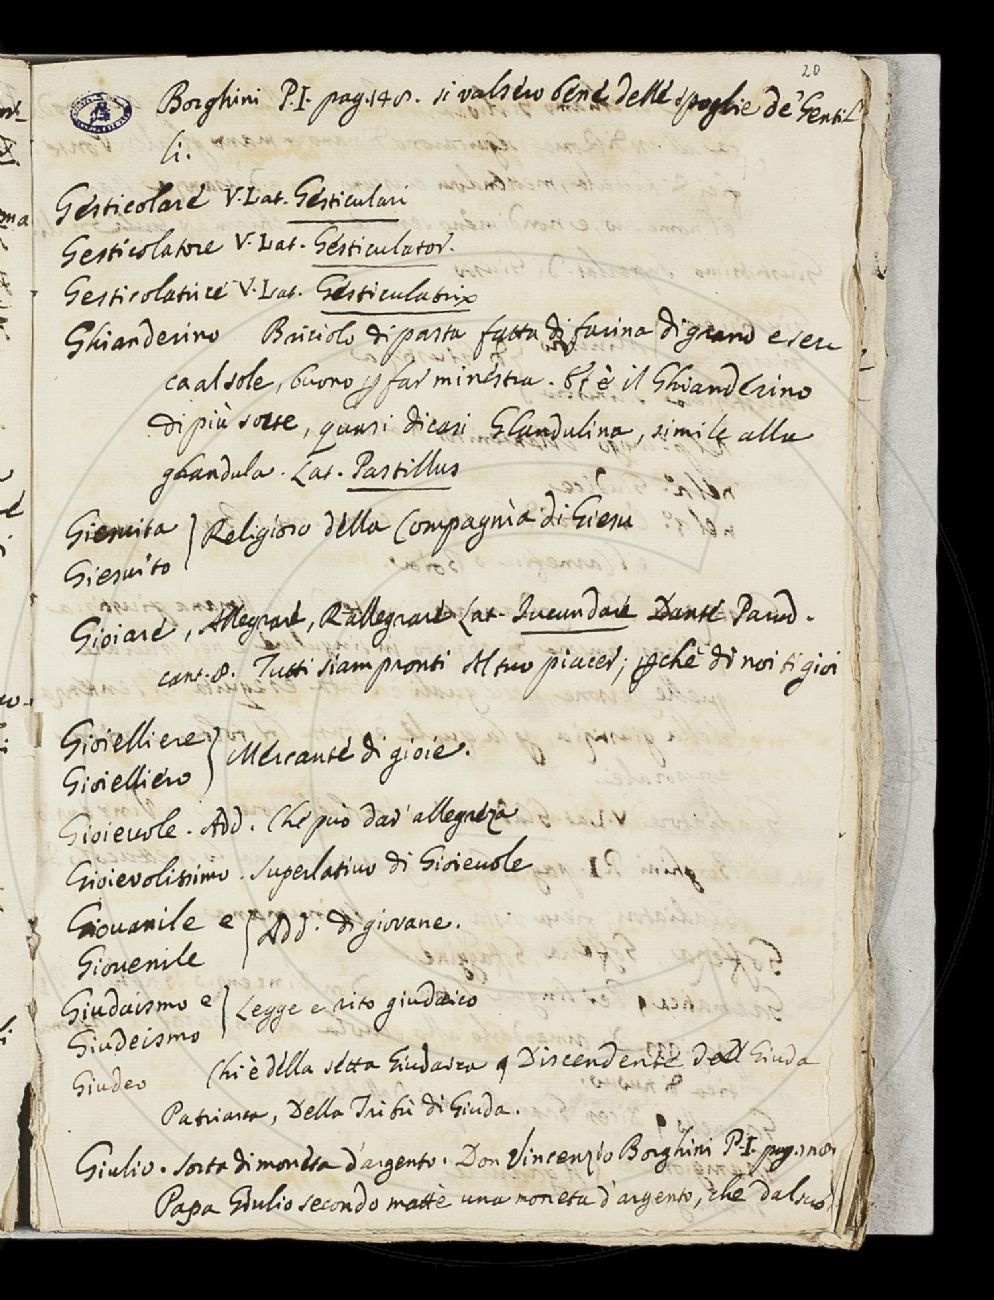 20
Borghini P.I. pag. 148. si valsero bene delle spoglie de' Genti
li.
Gesticolare V. Lat. Gesticulari
Gesticolatore V. Lat. Gesticulator.
Gesticolatrice V. Lat. Gesticulatrix
Ghianderino Briciolo di pasta fatta di farina di grano e sec
ca al sole, buono p far minestra. Et è il Ghianderino
di più sorte, quasi dicasi Glandulina, simile alla
ghandula. Lat. Pastillus
Giesuita
Giesuito } Religioso della Compagnia di Giesu
Gioiare, Allegrare, Rallegrare Lat. Iucundare Dante Parad.
cant. 8. Tutti siam pronti Al tuo piacer; pchè di noi ti gioi
Gioielliere
Gioielliero } Mercante di gioie.
Gioieuole. Add. Che può dar' allegreza
Gioievolissimo. superlativo di Gioieuole
Giouanile e
Giouenile { Add. di giovane.
Giudaismo e
Giudeismo } Legge e rito giudaico
Giudeo Chi è della setta Giudaica o Discendente dal Giuda
Patriarca, Della Tribù di Giuda.
Giulio. sorta di moneta d'argento. Don Vincenzio Borghini P.I. pag.
Papa Giulio secondo mattè una moneta d'argento, che dal suo